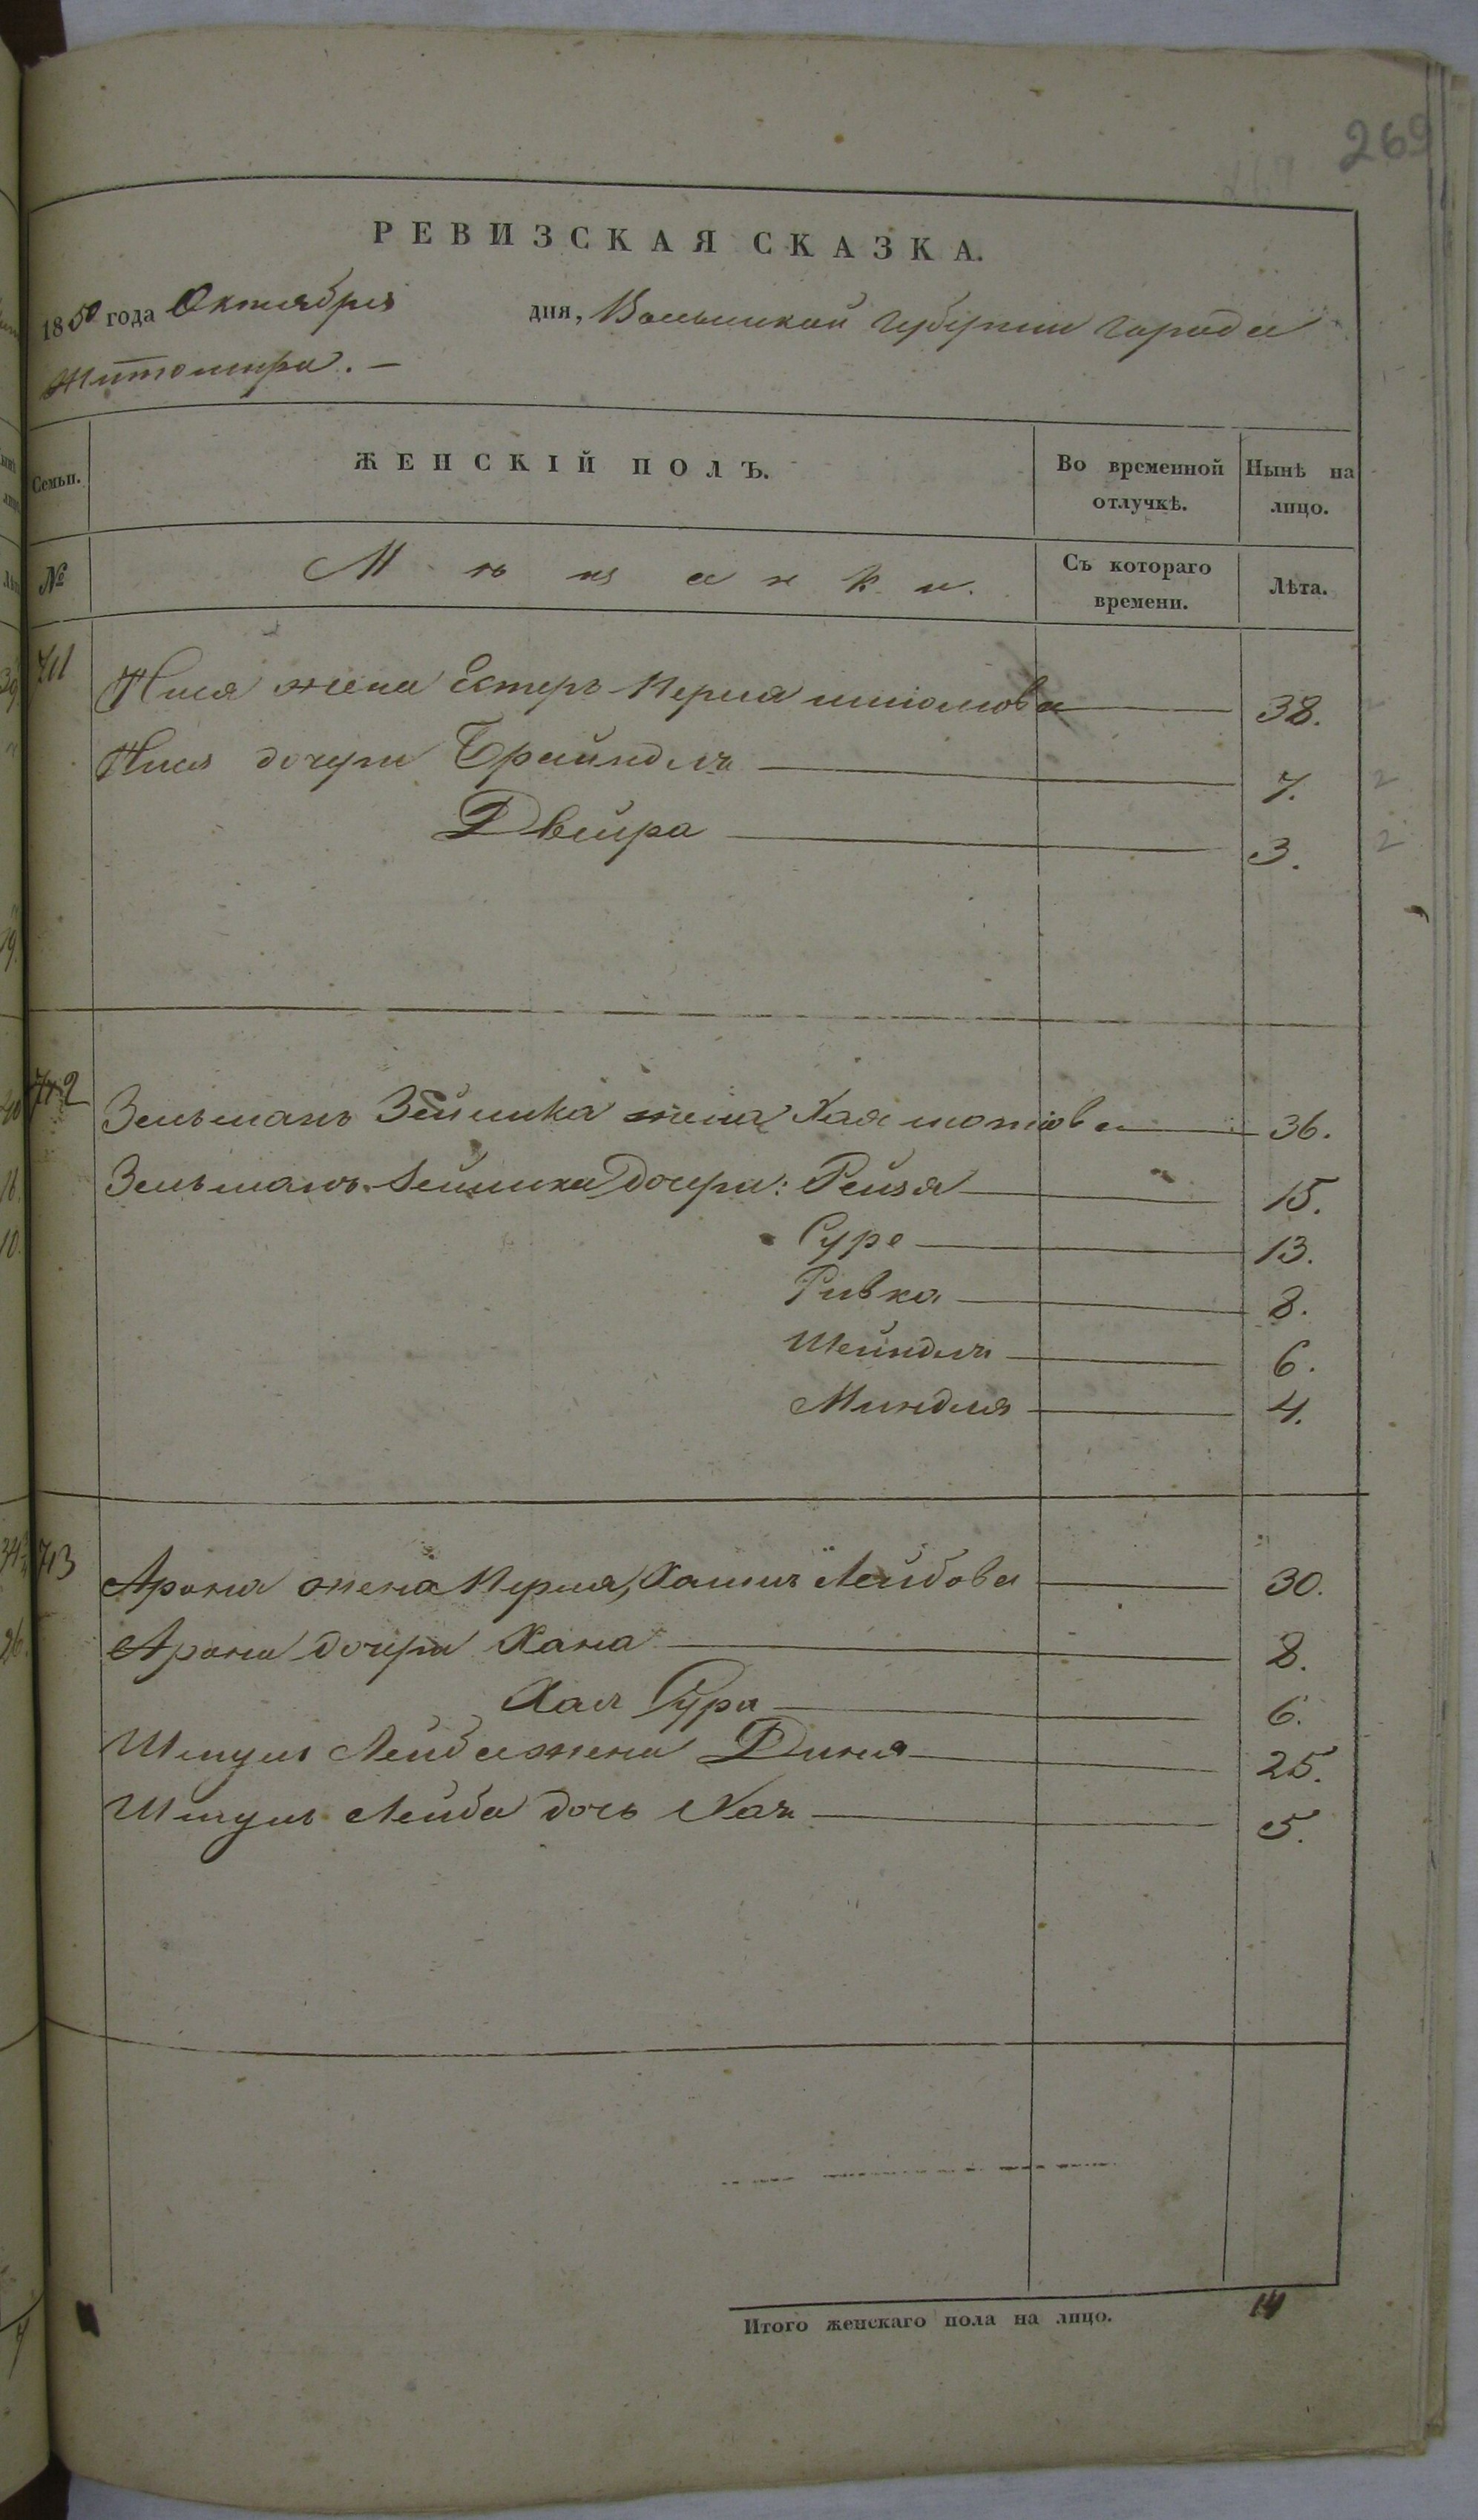 269
РЕВИЗСКАЯ СКАЗКА.
1850 года Октября дня, Волынской Губернии города
Житомира. —
Семьи. ЖЕНСКІЙ ПОЛЪ. Во временной отлучкѣ. Нынѣ на лицо.
№ Мѣщанки. Съ котораго времени. Лѣта.
711 жена Естеръ Перля 38.
дочери Брайндля 7. 2
Двейра 3. 2
712 Зельманъ Зейлика жена Хая 36.
Зельманъ Зейлика дочери: Рейзя 15.
Суре 13.
Ривка 8.
Шейндля 6.
Миндля 4.
713 Арона жена Перля, Лейбова 30.
Арона дочери Хана 8.
Хая Сура 6.
Шмуль Лейба жена Диня 25.
Шмуль Лейба дочь Хая 5.
Итого женскаго пола на лицо. 14